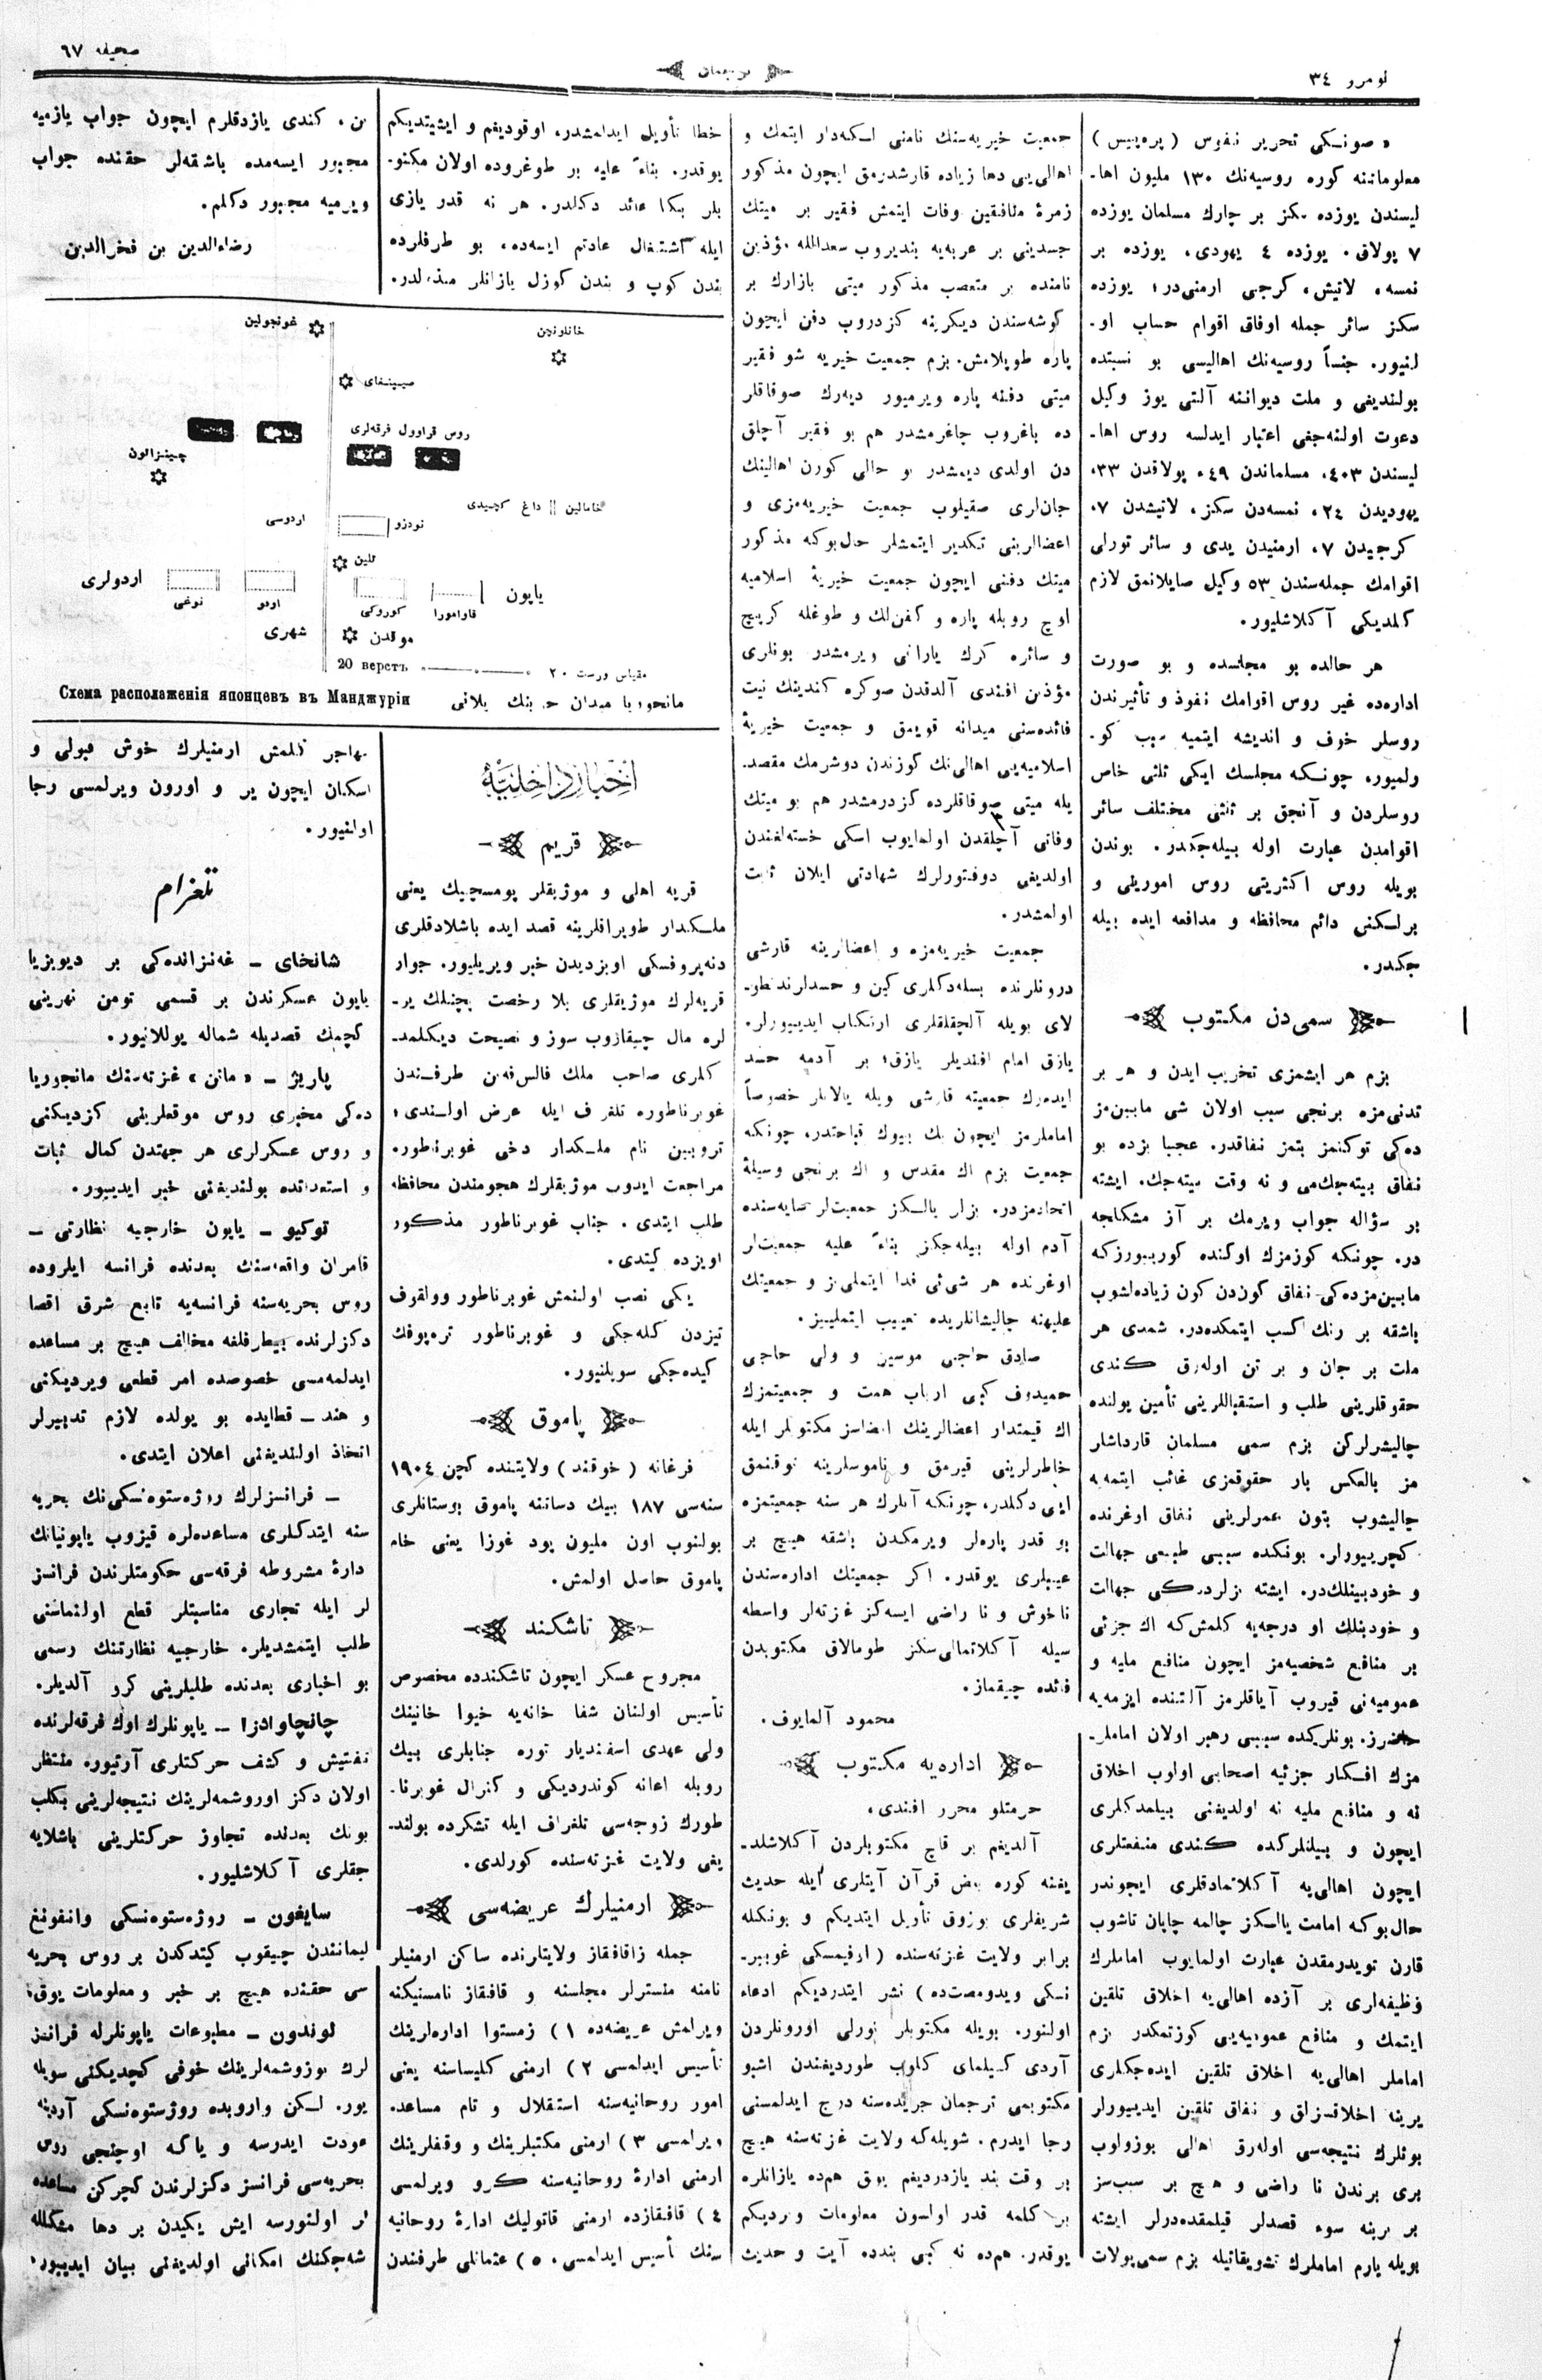 نومرو ٣٤
ترجمان
صحيفه ٦٧
« صوڭكى تحرير نفوس ( پره‌پيس )
معلوماتنه كوره روسيه‌نك ١٣٠ مليون اها-
ليسندن يوزده سكز بر چارك مسلمان يوزده
٧ پولاق. يوزده ٤ يهودى، يوزده بر
نمسه، لاتيش، كرجى ارمنى‌در؛ يوزده
سكز سائر جمله اوفاق اقوام حساب او-
لنيور. جنساً روسيه‌نك اهاليسى بو نسبتده
بولنديغى و ملت ديواننه آلتى يوز وكيل
دعوت اولنه‌جغى اعتبار ايدلسه روس اها-
ليسندن ٤٠٣، مسلماندن ٤٩، پولاقدن ٣٣،
يهوديدن ٢٤، نمسه‌دن سكز، لاتيشدن ٧،
كرجيدن ٧، ارمنيدن يدى و سائر تورلى
اقوامك جمله‌سندن ٥٣ وكيل صايلانمق لازم
كلديكى آكلاشليور.
هر حالده بو مجلسده و بو صورت
اداره‌ده غير روس اقوامك نفوذ و تأثيرندن
روسلر خوف و انديشه ايتميه سبب كو-
رلميور، چونكه مجلسك ايكى ثلثى خاص
روسلردن و آنجق بر ثلثى مختلف سائر
اقوامدن عبارت اوله بيله‌جكدر. بوندن
بويله روس اكثريتى روس امورينى و
برلكنى دائم محافظه و مدافعه ايده بيله
جكدر.
سمى‌دن مكتوب
بزم هر ايشمزى تخريب ايدن و هر بر
تدنى‌مزه برنجى سبب اولان شى مابين‌مز
ده‌كى توكنمز بتمز نفاقدر. عجبا بزده بو
نفاق بيته‌جك‌مى و نه وقت بيته‌جك. ايشته
بر سؤاله جواب ويرمك بر آز مشكلجه
در. چونكه كوزمزك اوكنده كوريورزكه
مابين‌مزده‌كى نفاق كون‌دن كون زياده‌لشوب
باشقه بر رنك كسب ايتمكده‌در. شمدى هر
ملت بر جان و بر تن اوله‌رق كندى
حقوقلرينى طلب و استقباللرينى تأمين يولنده
چاليشرلركن بزم سمى مسلمان قارداشلر
مز بالعكس بار حقوقمزى غائب ايتمه‌يه
چاليشوب بتون عمرلرينى نفاق اوغرنده
كچرييورلر. بونكده سببى طبيعى جهالت
و خودبينلك‌در. ايشته بزلرده‌كى جهالت
و خودبينلك او درجه‌يه كلمش‌كه اك جزئى
بر منافع شخصيه‌مز ايچون منافع مليه و
عموميه‌نى قيروب آياقلرمز آلتنده ايزمه‌يه
حاضرز. بونلريكده سببى رهبر اولان اماملر-
مزك افكار جزئيه اصحابى اولوب اخلاق
نه و منافع مليه نه اولديغنى بيلمدكلرى
ايچون و بيلنلركده كندى منفعتلرى
ايچون اهالى‌يه آكلاتمادقلرى ايچوندر
حال‌بوكه امامت يالكز چالمه چاپان تاشوب
قارن تويدرمقدن عبارت اولمايوب اماملرك
وظيفه‌لرى بر آزده اهالى‌يه اخلاق تلقين
ايتمك و منافع عموميه‌يى كوزتمكدر بزم
اماملر اهالى‌يه اخلاق تلقين ايده‌جكلرى
يرينه اخلاقسزلق و نفاق تلقين ايدييورلر
بونلرك نتيجه‌سى اوله‌رق اهالى بوزولوب
برى برندن نا راضى و هيچ بر سبب‌سز
بر برينه سوء قصدلر قيلمقده‌درلر ايشته
بويله يارم اماملرك تشويقاتيله بزم سمى‌پولات
جمعيت خيريه‌سنك نامنى لكه‌دار ايتمك و
اهالى‌يى دها زياده قارشدرمق ايچون مذكور
زمرۀ منافقين وفات ايتمش فقير بر ميتك
جسدينى بر عربه‌يه بنديروب سعدالله مؤذين
نامنده بر متعصب مذكور ميتى بازارك بر
كوشه‌سندن ديكرينه كزدروب دفن ايچون
پاره طوپلامش. بزم جمعيت خيريه شو فقير
ميتى دفنه پاره ويرميور ديه‌رك صوقاقلر
ده باغروب چاغرمشدر هم بو فقير آچلق
دن اولدى ديمشدر بو حالى كورن اهالينك
جان‌لرى صقيلوب جمعيت خيريه‌مزى و
اعضالرينى تكدير ايتمشلر حال‌بوكه مذكور
ميتك دفنى ايچون جمعيت خيريۀ اسلاميه
اوچ روبله پاره و كفن‌لك و طوغله كرپيچ
و سائره كرك يارانى ويرمشدر بونلرى
مؤذين افندى آلدقدن صوكره كندينك نيت
فائده‌سنى ميدانه قويمق و جمعيت خيريۀ
اسلاميه‌يى اهالى‌نك كوزندن دوشرمك مقصد-
يله ميتى صوقاقلرده كزدرمشدر هم بو ميتك
وفاتى آچلقدن اولمايوب اسكى خسته‌لغندن
اولديغى دوقتورلرك شهادتى ايلان ثابت
اولمشدر.
جمعيت خيريه‌مزه و اعضالرينه قارشى
درونلرنده بسله‌دكلرى كين و حسدلرندن طو-
لاى بويله آلچقلقلرى ارتكاب ايدييورلر.
يازق امام افنديلر يازق؛ بر آدمه حسد
ايده‌رك جمعيته قارشى ويله يالانلر خصوصاً
اماملرمز ايچون بك بيوك قباحتدر، چونكه
جمعيت بزم اك مقدس و اك برنجى وسيلۀ
اتحادمزدر. بزلر يالكز جمعيت‌لر سايه‌سنده
آدم اوله بيله‌جكز بناءً عليه جمعيت‌لر
اوغرنده هر شى‌ئى فدا ايتملى‌ز و جمعيتك
عليهنه چاليشانلريده تعييب ايتملييز.
صادق حاجى موسين و ولى حاجى
حميدوف كبى ارباب همت و جمعيتمزك
اك قيمتدار اعضالرينك امضاسز مكتوبلر ايله
خاطرلرينى قيرمق و ناموسلرينه توقنمق
ايى دكلدر، چونكه آنلرك هر سنه جمعيتمزه
بو قدر پاره‌لر ويرمكدن باشقه هيچ بر
عيبلرى يوقدر. اكر جمعيتك اداره‌سندن
ناخوش و نا راضى ايسه‌كز غزته‌لر واسطه
سيله آكلاتمالى‌سكز طومالاق مكتوبدن
فائده چيقماز.
محمود آلمايوف.
اداره‌يه مكتوب
حرمتلو محرر افندى،
آلديغم بر قاچ مكتوبلردن آكلاشلد-
يغنه كوره بعض قرآن آيتلرى ايله حديث
شريفلرى بوزوق تأويل ايتديكم و بونكله
برابر ولايت غزته‌سنده ( اوفيمسكى غوبير-
نسكى ويدومصت‌ده ) نشر ايتدرديكم ادعاء
اولنور. بويله مكتوبلر تورلى اورونلردن
آردى كسيلماى كلوب طورديغندن اشبو
مكتوبمى ترجمان جريده‌سنه درج ايدلمسنى
رجا ايدرم. شويله‌كه ولايت غزته‌سنه هيچ
بر وقت بند يازدرديغم يوق هم‌ده يازانلره
بر كلمه قدر اولسون معلومات ويرديكم
يوقدر. هم‌ده نه كبى بندده آيت و حديث
خطا تأويل ايدلمشدر، اوقوديغم و ايشيتديكم
يوقدر. بناءً عليه بر طوغروده اولان مكتو-
بلر بكا عائد دكلدر. هر نه قدر يازى
ايله اشتغال عادتم ايسه‌ده، بو طرفلرده
بندن كوپ و بندن كوزل يازانلر منذ لدر.
بن، كندى يازدقلرم ايچون جواب يازميه
مجبور ايسه‌مده باشقه‌لر حقنده جواب
ويرميه مجبور دكلم.
رضاءالدين بن فخرالدين
غونجولين
خانلونچن
سيپينغاى
روس قراوول فرقه‌لرى
چينزالون
خامالين داغ كچيدى
اردوسى
نودزو
تلين
اردولرى
نوغى
اودو
كوروكى
قاوامورا
ياپون
شهرى
موقدن
20 верстъ
مقياس ورست ٢٠
Схема расположенія японцевъ въ Манджуріи
مانجوريا ميدان حربنك پلانى
اخبار داخليه
قريم
قريه اهلى و موژيقلر پومسچيك يعنى
ملكدار طوپراقلرينه قصد ايده باشلادقلرى
دنه‌پروفسكى اويزديدن خبر ويريليور. جوار
قريه‌لرك موژيقلرى بلا رخصت بچنلك ير-
لره مال چيقازوب سوز و نصيحت ديكلمد-
كلرى صاحب ملك فالس‌فه‌ن طرفندن
غوبرناطوره تلغراف ايله عرض اولندى؛
تروپين نام ملكدار دخى غوبرناطوره
مراجعت ايدوب موژيقلرك هجومندن محافظه
طلب ايتدى. جناب غوبرناطور مذكور
اويزده كيتدى.
يكى نصب اولنمش غوبرناطور وولقوف
تيزدن كله‌جكى و غوبرناطور تره‌پوفك
كيده‌جكى سويلنيور.
پاموق
فرغانه ( خوقند ) ولايتنده كچن ١٩٠٤
سنه‌سى ١٨٧ بيك دساتنه پاموق بوستانلرى
بولنوب اون مليون پود غوزا يعنى خام
پاموق حاصل اولمش.
تاشكند
مجروح عسكر ايچون تاشكندده مخصوص
تأسيس اولنان شفا خانه‌يه خيوا خانينك
ولى عهدى اسفنديار توره جنابلرى بيك
روبله اعانه كوندرديكى و كنرال غوبرنا-
طورك زوجه‌سى تلغراف ايله تشكرده بولند-
يغى ولايت غزته‌سنده كورلدى.
ارمنيلرك عريضه‌سى
جمله زاقافقاز ولايتلرنده ساكن ارمنيلر
نامنه منسترلر مجلسنه و قافقاز نامسنيكنه
ويرلمش عريضه‌ده ١) زمستوا اداره‌لرينك
تأسيس ايدلمسى ٢) ارمنى كليساسنه يعنى
امور روحانيه‌سنه استقلال و تام مساعده
ويرلمسى ٣) ارمنى مكتبلرينك و وقفلرينك
ارمنى ادارۀ روحانيه‌سنه كرو ويرلمسى
٤) قافقازده ارمنى قاتوليك ادارۀ روحانيه
سنك تأسيس ايدلمسى. ٥) عثمانلى طرفندن
مهاجر كلمش ارمنيلرك خوش قبولى و
اسكان ايچون ير و اورون ويرلمسى رجا
اولنيور.
تلغرام
شانخاى ـ غه‌نزانده‌كى بر ديويزيا
ياپون عسكرندن بر قسمى تومن نهرينى
كچمك قصديله شماله يوللانيور.
پاريژ ـ « ماتن » غزته‌سنك مانجوريا
ده‌كى مخبرى روس موقعلرينى كزديكنى
و روس عسكرلرى هر جهتدن كمال ثبات
و استعدادده بولنديغنى خبر ايدييور.
توكيو ـ ياپون خارجيه نظارتى ـ
قامران واقعه‌سنك بعدنده فرانسه ايلروده
روس بحريه‌سنه فرانسه‌يه تابع شرق اقصا
دكزلرنده بيطرفلغه مخالف هيچ بر مساعده
ايدلمه‌مسى خصوصده امر قطعى ويرديكنى
و هند ـ قطاىده بو يولده لازم تدبيرلر
اتخاذ اولنديغنى اعلان ايتدى.
ـ فرانسزلرك روژه‌ستوه‌نسكى‌نك بحريه
سنه ايتدكلرى مساعده‌لره قيزوب ياپونيانك
دارۀ مشروطه فرقه‌سى حكومتلرندن فرانسز
لر ايله تجارى مناسبتلر قطع اولنماسنى
طلب ايتمشديلر. خارجيه نظارتنك رسمى
بو اخبارى بعدنده طلبلرينى كرو آلديلر.
چانچاوادزا ـ ياپونلرك اوك فرقه‌لرنده
تفتيش و كشف حركتلرى آرتيور. منتظر
اولان دكز اوروشمه‌لرينك نتيجه‌لرينى بكلب
بونك بعدنده تجاوز حركتلرينى باشلايه
جقلرى آكلاشليور.
سايغون ـ روژه‌ستوه‌نسكى وانفونغ
ليمانندن چيقوب كيتدكدن بر روس بحريه
سى حقنده هيچ بر خبر و معلومات يوق.
لوندون ـ مطبوعات ياپونلرله فرانسز
لرك بوزوشمه‌لرينك خوفى كچديكنى سويله
يور. لكن وارويده روژستوه‌نسكى آردينه
عودت ايدرسه و ياكه اوچنجى روس
بحريه‌سى فرانسز دكزلرندن كچركن مساعده
لر اولنورسه ايش يكيدن بر دها مشكلله
شه‌جكنك امكانى اولديغنى بيان ايدييور.